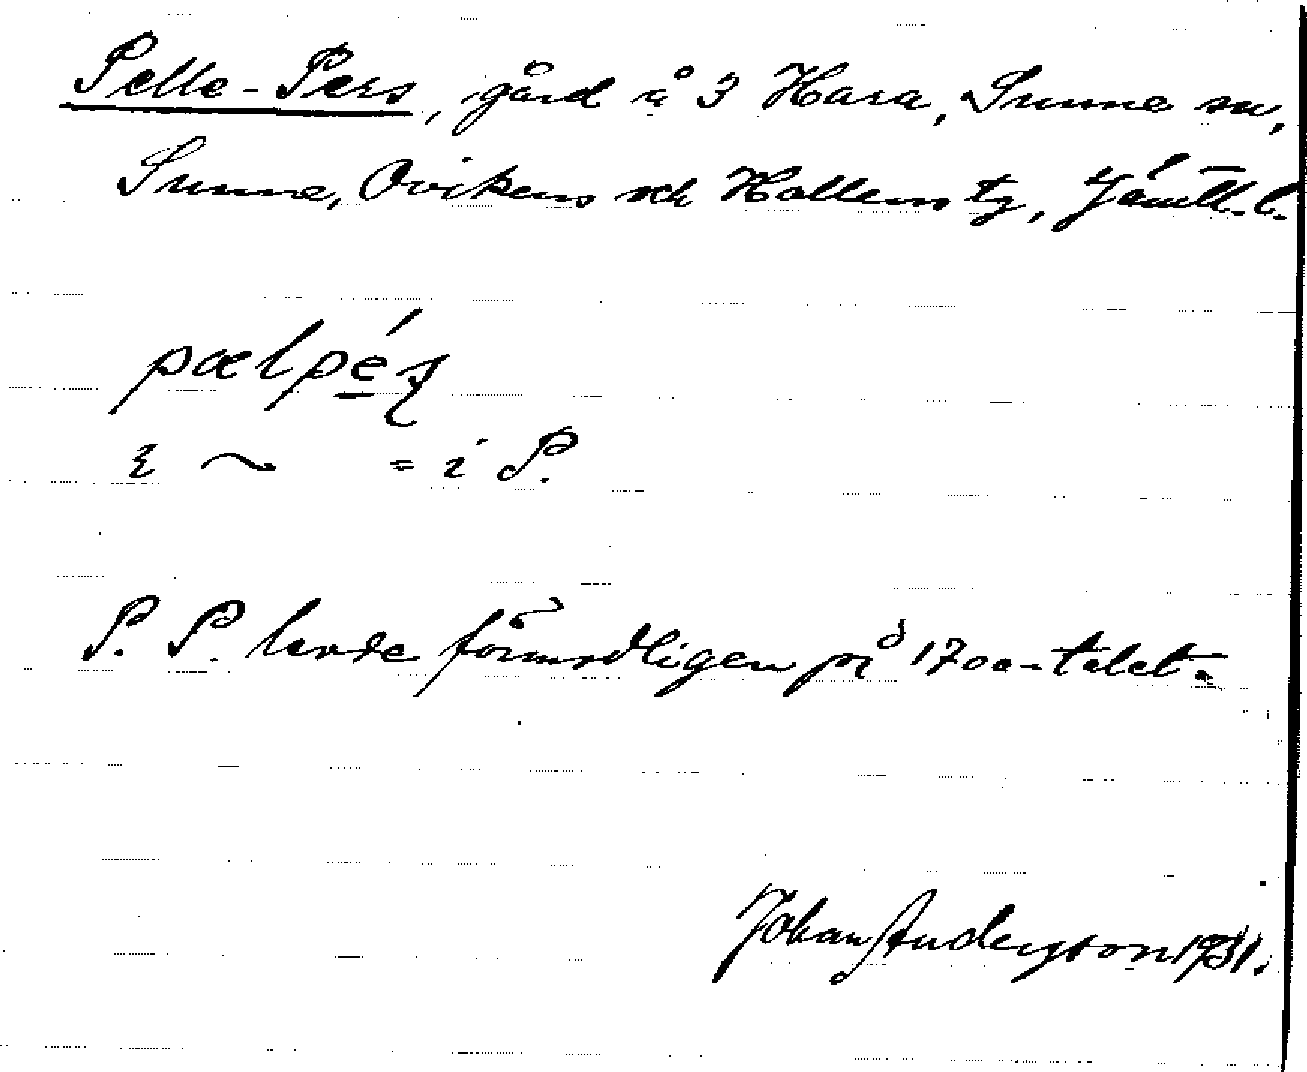 Pelle-Pers, gård å 3 Hara, Sunne sn,
Sunne, Ovikens och Hallens tg, Jämtl. l.
pælpés
ɩ ~ = i P.
P. P. levde förmodligen på 1700-talet.
Johan Andersson 1931.